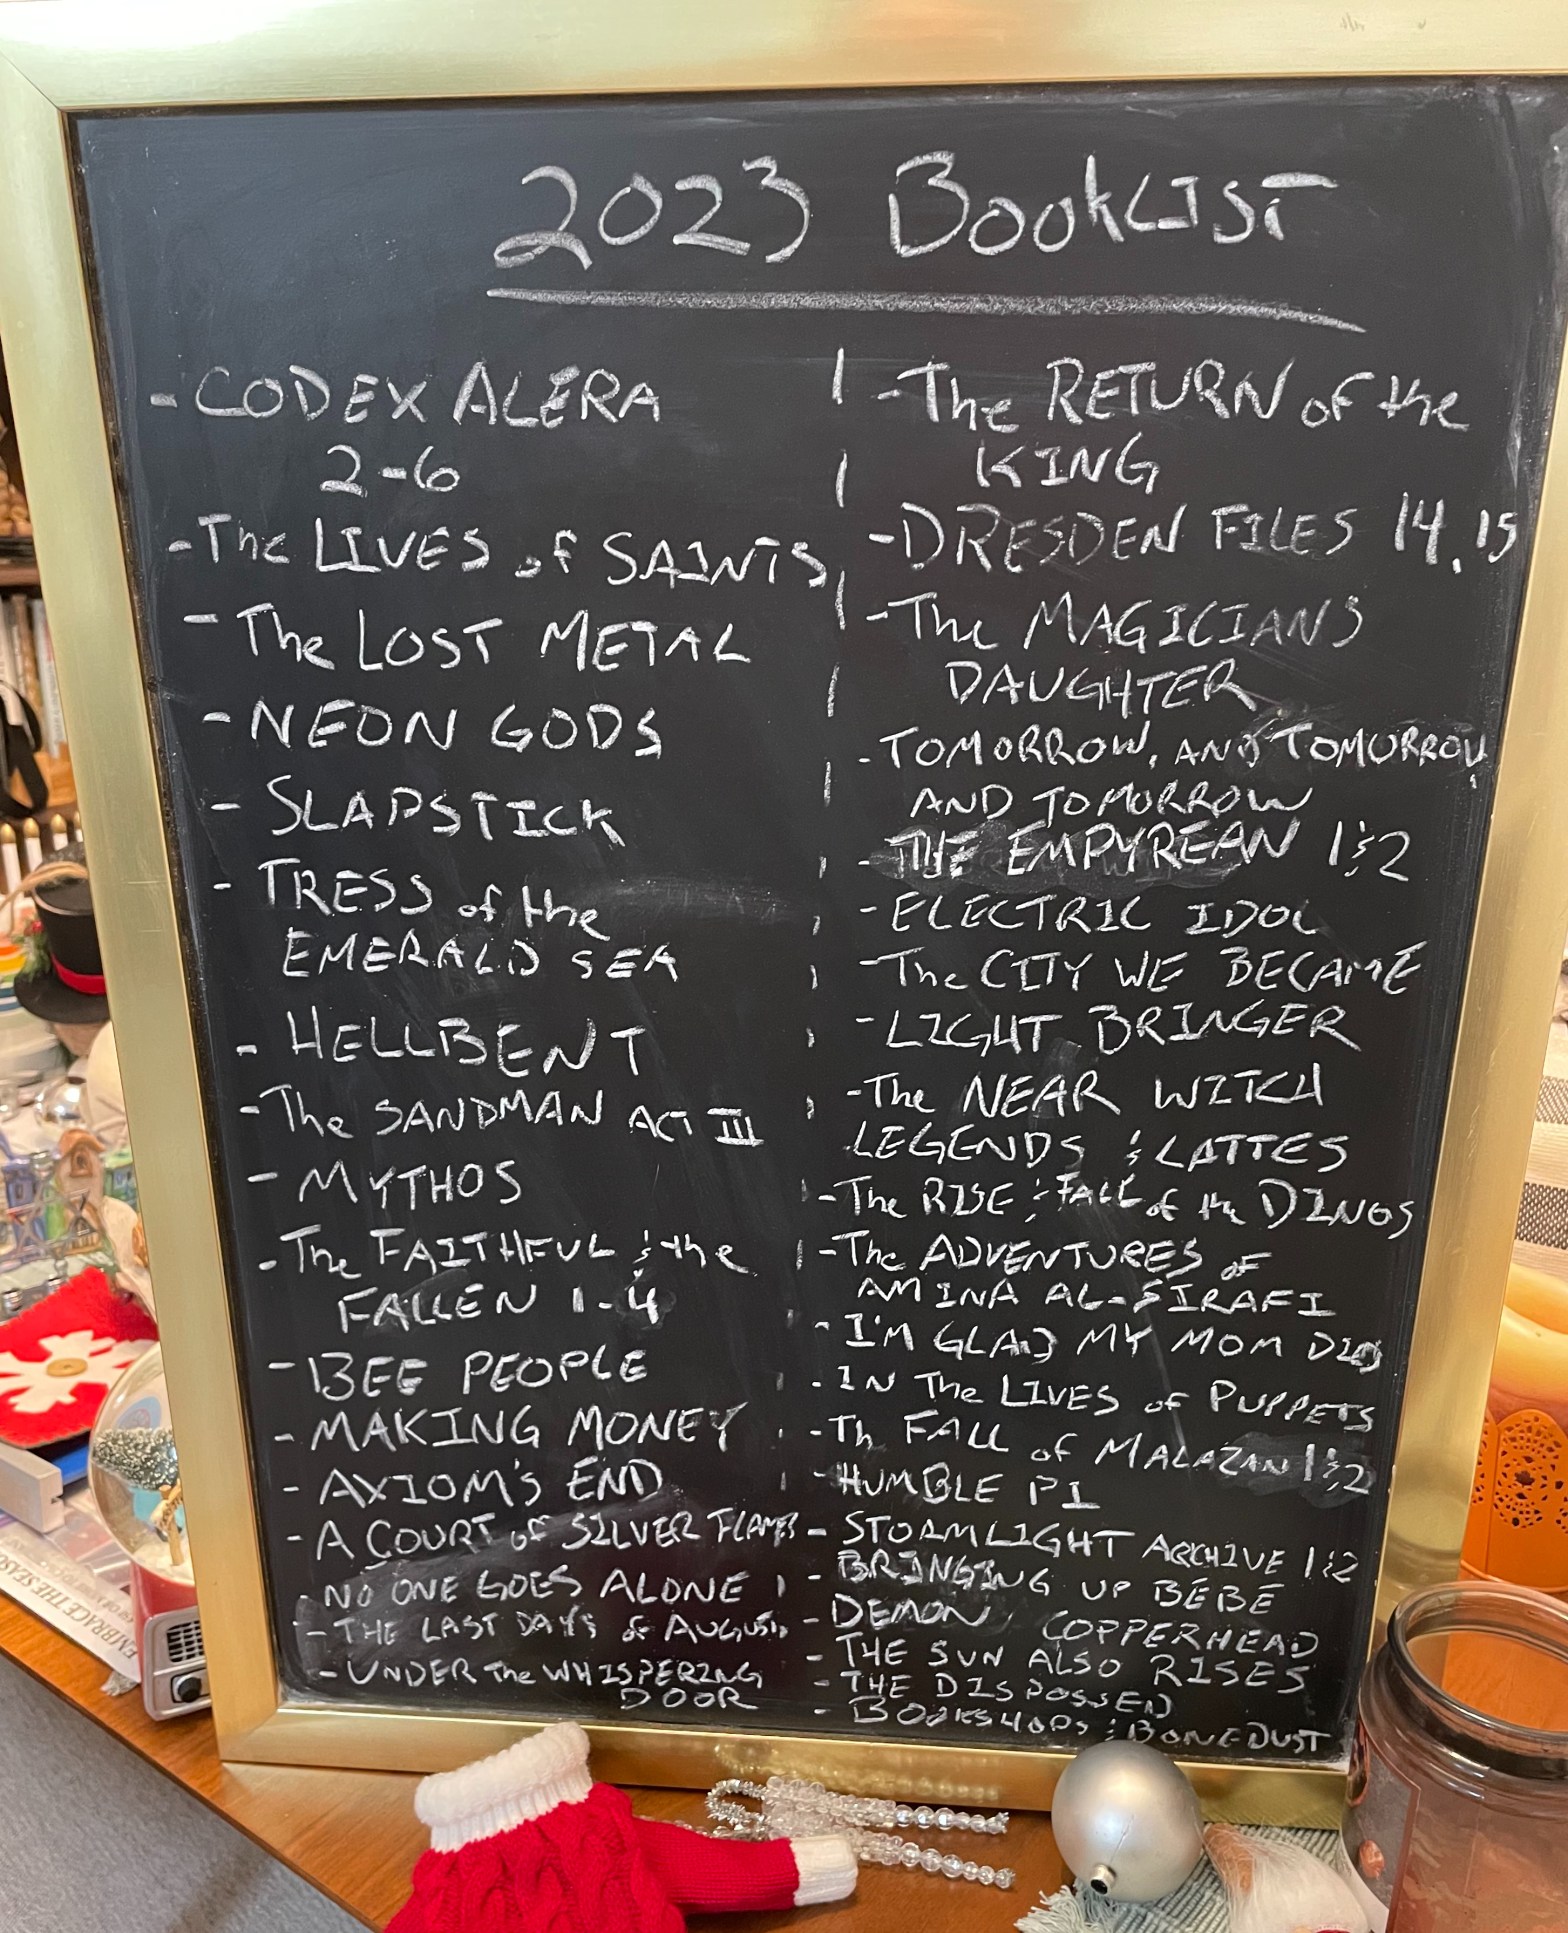 2023 BookLIST
- CODEX ALERA
2-6
- The LIVES of SAINTS
- The LOST METAL
- NEON GODS
- SLAPSTICK
- TRESS of the
EMERALD SEA
- HELLBENT
- The SANDMAN ACT III
- MYTHOS
- The FAITHFUL & the
FALLEN 1-4
- BEE PEOPLE
- MAKING MONEY
- AXIOM'S END
- A COURT of SILVER FLAMES
- NO ONE GOES ALONE
- THE LAST DAYS of AUGUST
- UNDER The WHISPERING
DOOR
- The RETURN of the
KING
- DRESDEN FILES 14, 15
- The MAGICIANS
DAUGHTER
- TOMORROW, AND TOMORROW,
AND TOMORROW
- THE EMPYREAN 1&2
- ELECTRIC IDOL
- The CITY WE BECAME
- LIGHT BRINGER
- The NEAR WITCH
LEGENDS & LATTES
- The RISE & FALL of the DINOS
- The ADVENTURES OF
AMINA AL-SIRAFI
- I'M GLAD MY MOM DIED
- IN The LIVES of PUPPETS
- Th FALL of MALAZAN 1&2
- HUMBLE PI
- STORMLIGHT ARCHIVE 1&2
- BRINGING UP BEBE
- DEMON COPPERHEAD
- THE SUN ALSO RISES
- THE DISPOSSED
- BOOKSHOPS & BONEDUST
EMBRACE THE SEASON